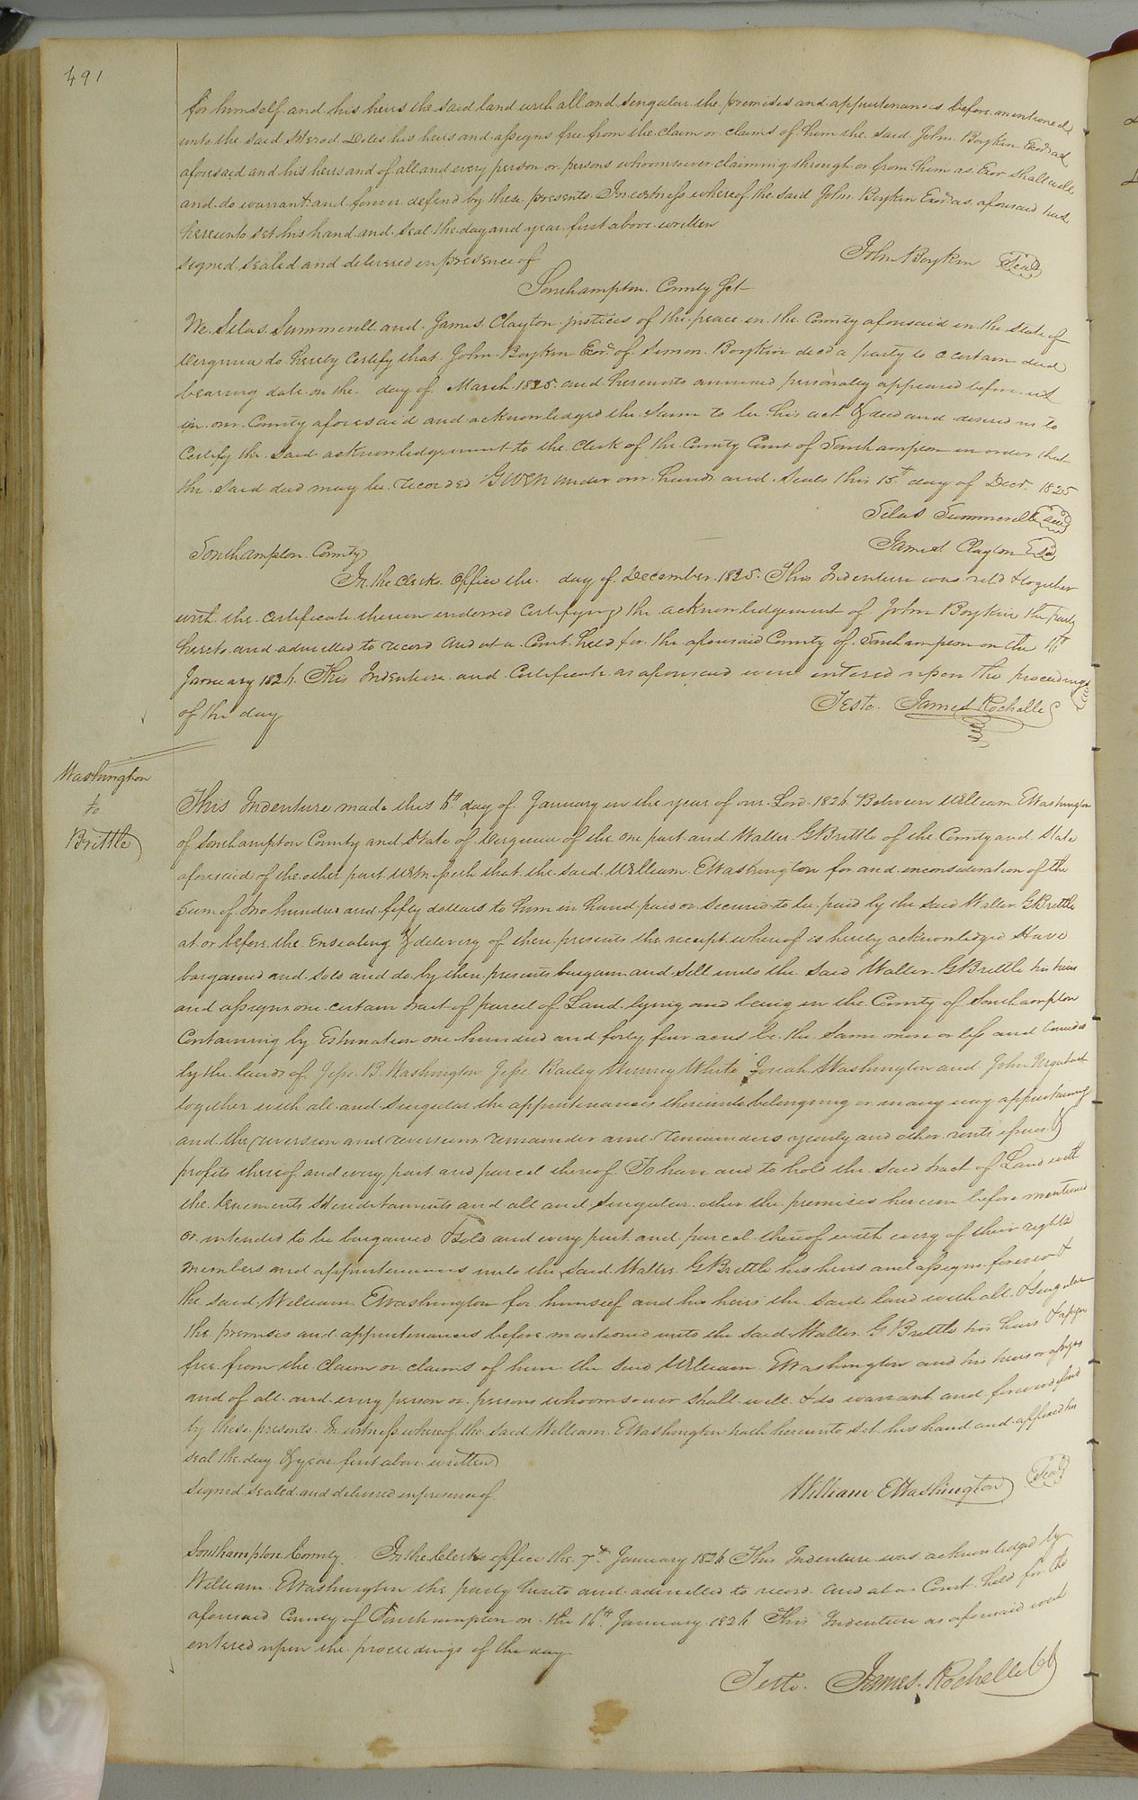 491
for himself and his heirs the said land with all and singular the premises and appurtenances before mentioned
unto the said Herod Liles his heirs and assigns free from the claim or claims of him the said John Boykin Exor as
aforesaid and his heirs and of all and every person or persons whomsoever claiming through or from them as Exor shall will
and do warrant and forever defend by these presents In witness whereof the said John Boykin Exor as aforesaid hath
hereunto set his hand and seal the day and year first above written
signed sealed and delivered in presence of
John Boykin Seal
Southampton County Sct
We Silas Summerell and James Clayton justices of the peace in the County aforesaid in the State of
Virginia do hereby Certify that John Boykin Exor of Simon Boykin decd a party to a certain deed
bearing date on the day of March 1825 and hereunto annexed personally appeared before us
in our County aforesaid and acknowledged the same to be his act & deed and desired us to
Certify the said acknowledgement to the Clerk of the County Court of Southampton in order that
the said deed may be recorded Given under our hands and seals this 15th day of Decr 1825
Silas Summerell Seal
James Clayton Seal
Southampton County
In the Clerks Office the day of December 1825 This Indenture was recd & together
with the certificate thereon endorsed Certifying the acknowledgement of John Boykin the party
hereto and admitted to record And at a Court held for the aforesaid County of Southampton on the 16th
January 1826 This Indenture and Certificate as aforesaid were entered upon the proceedings
of the day
Teste James Rochelle C
Washington
to
Brittle
This Indenture made this 6th day of January in the year of our Lord 1826 Between William E Washington
of Southampton County and State of Virginia of the one part and Walter G Brittle of the County and State
aforesaid of the other part Witnesseth that the said William E Washington for and in consideration of the
sum of two hundred and fifty dollars to him in hand paid or secured to be paid by the said Walter G Brittle
at or before the ensealing & delivery of these presents the receipt whereof is hereby acknowledged Have
bargained and sold and do by these presents bargain and sell unto the said Walter G Brittle his heirs
and assigns one certain tract of parcel of Land lying and being in the County of Southampton
Containing by Estimation one hundred and forty four acres be the same more or less and bounded
by the lands of Jesse B Washington Jesse Bailey White Josiah Washington and John
together with all and singular the appurtenances thereunto belonging or in any way appertaining
and the reversion and reversions remainder and remainders yearly and other rents issues &
profits thereof and every part and parcel thereof To have and to hold the said tract of Land with
the tenements Hereditaments and all and singular other the premises herein before mentioned
or intended to be bargained & sold and every part and parcel thereof with every of their rights
members and appurtenances unto the said Walter G Brittle his heirs and assigns forever &
the said William E Washington for himself and his heirs the said land with all & singular
the premises and appurtenances before mentioned unto the said Walter G Brittle his heirs & assigns
free from the claim or claims of him the said William E Washington and his heirs or assigns
and of all and every person or persons whomsoever shall will & do warrant and forever defend
by these presents In witness whereof the said William E Washington hath hereunto set his hand and affixed his
seal the day & year first above written
Signed sealed and delivered in presence of
William E Washington Seal
Southampton County In the Clerks office the 7th January 1826 This Indenture was acknowledged by
William E Washington the party hereto and admitted to record And at a Court held for the
aforesaid County of Southampton on the 16th January 1826 This Indenture as aforesaid was
entered upon the proceedings of the day
Teste James Rochelle Cl